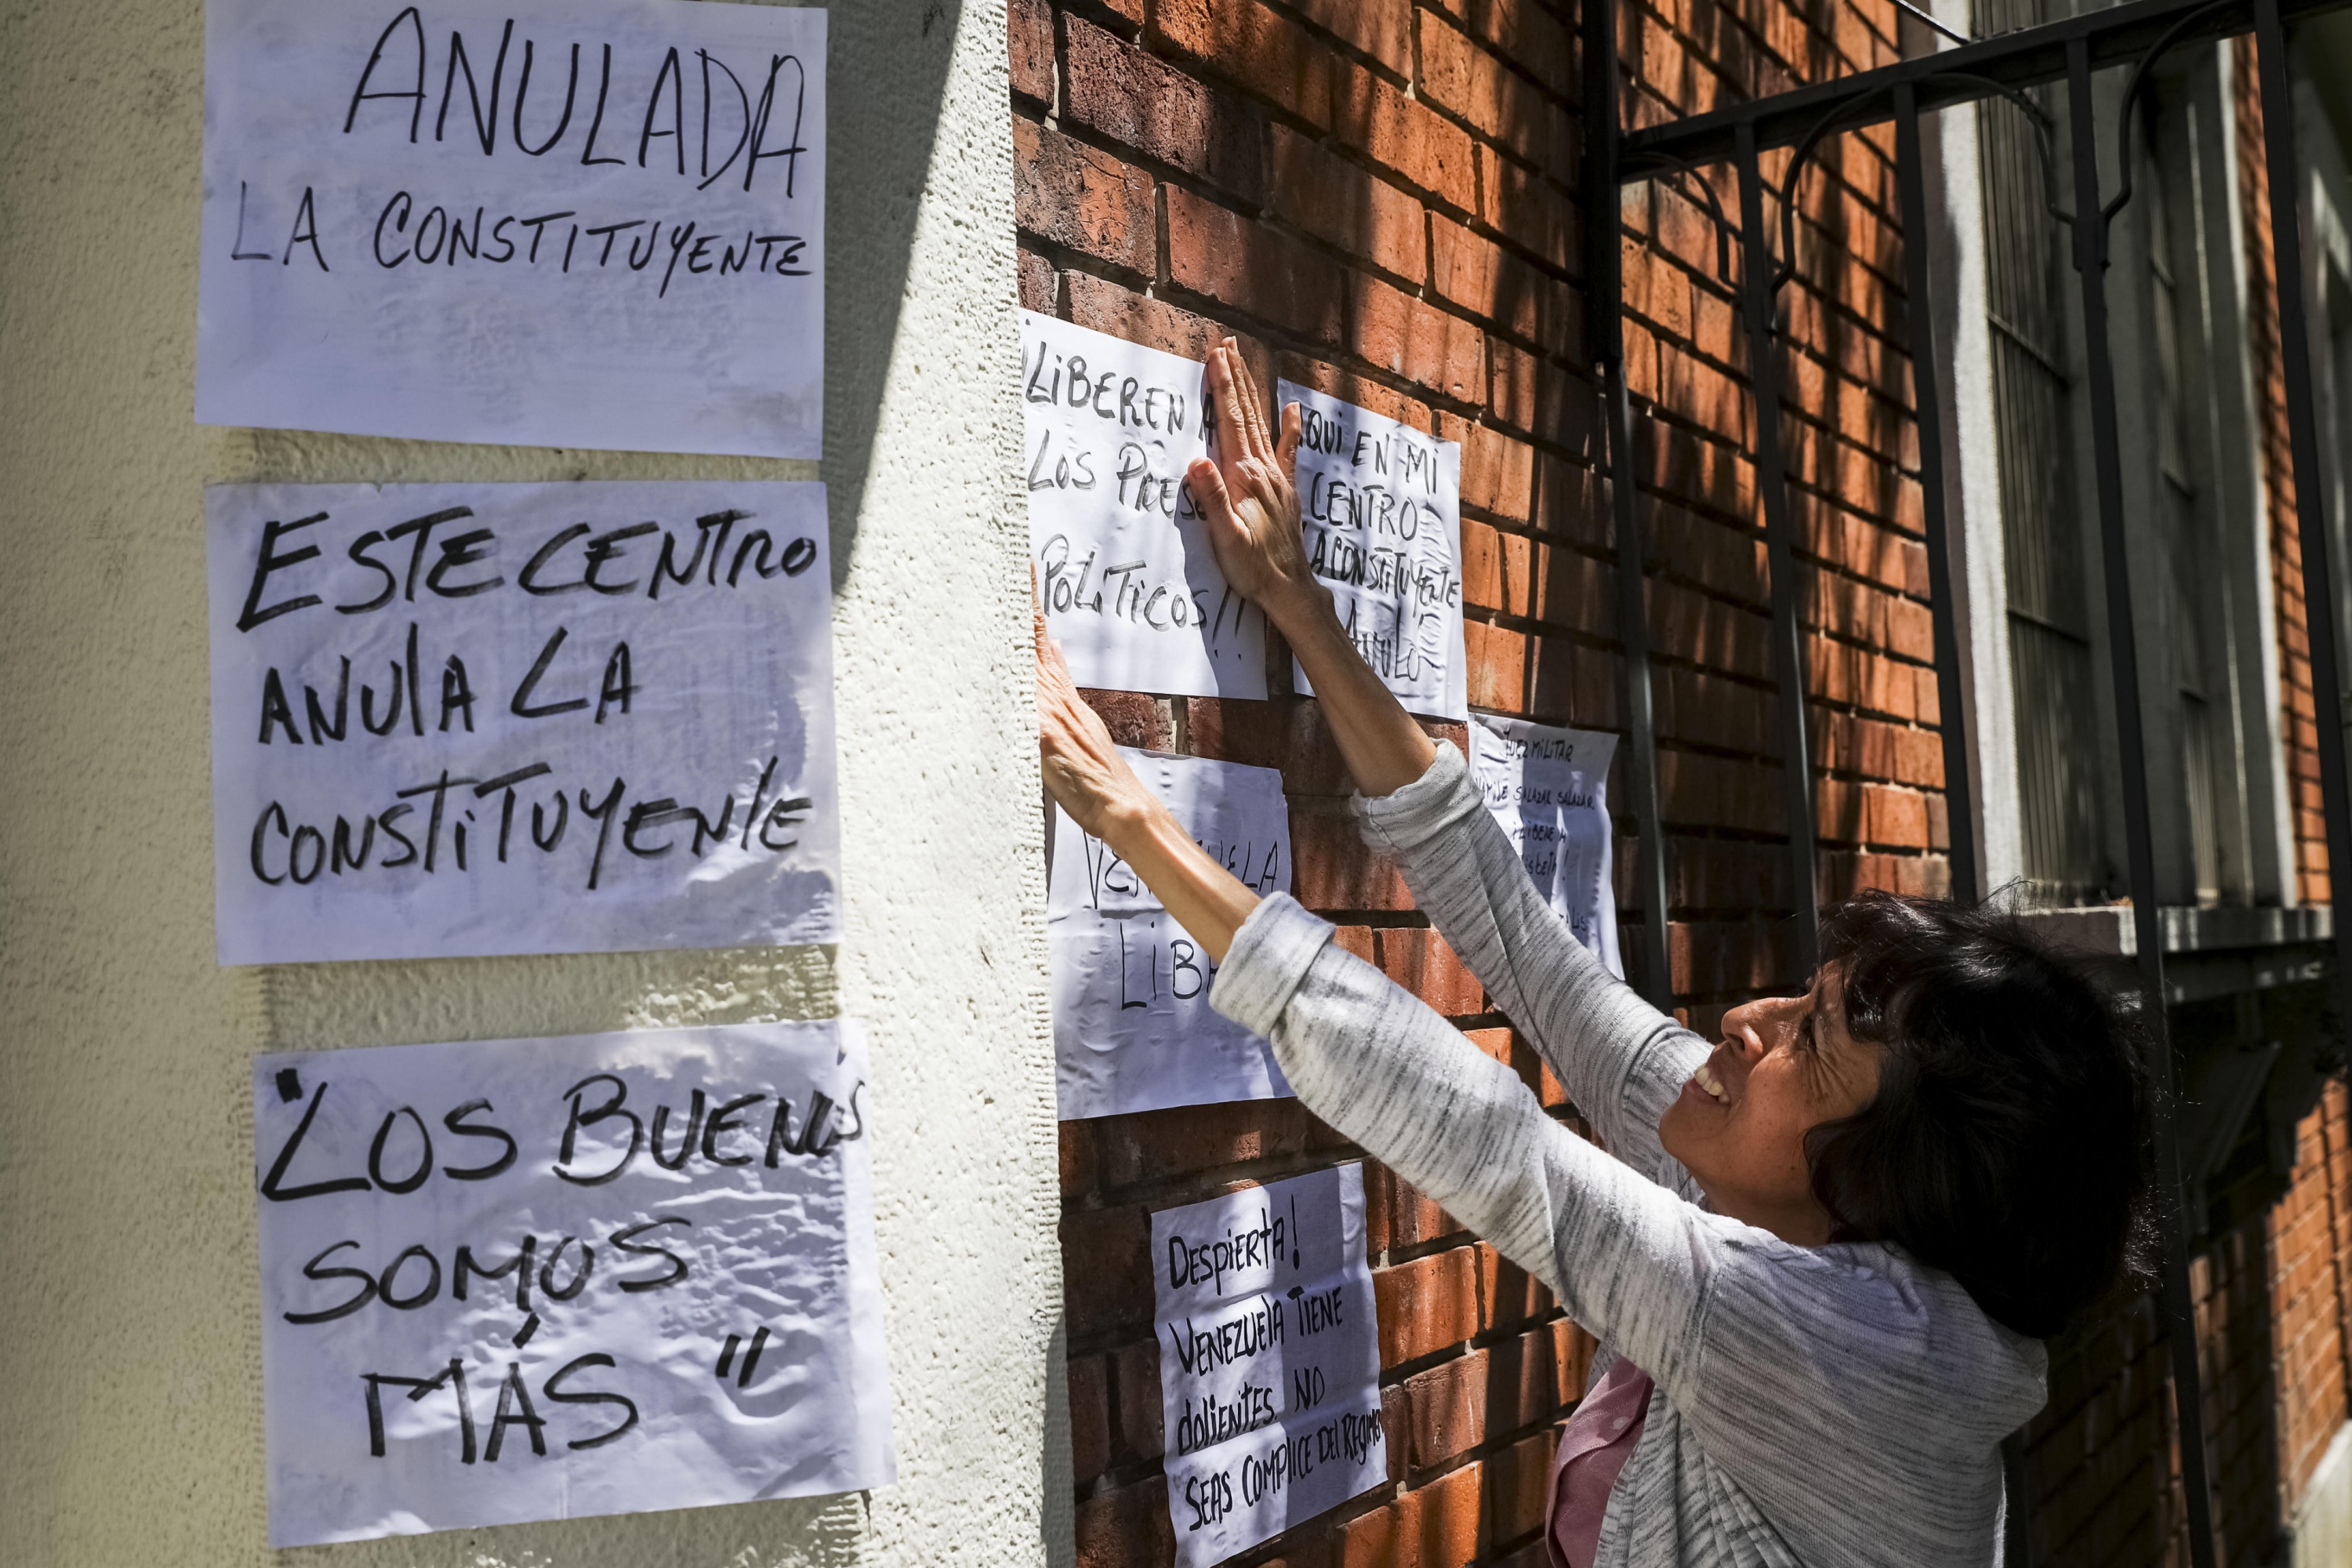 ANULADA
LA CONSTITUYENTE
ESTE CENTRO
ANULA LA
CONSTITUYENTE
"LOS BUENOS
SOMOS
MÁS"
LIBEREN A
LOS PRESOS
POLITICOS!!
AQUI EN MI
CENTRO
LA CONSTITUYENTE
LA
ANULO
VENEZUELA
LIBRE
JUEZ MILITAR
SALAZAR SALAZAR
LIBERE A
Despierta!
VENEZUELA TIENE
dolientes. NO
SEAS COMPLICE DEL REGIMEN